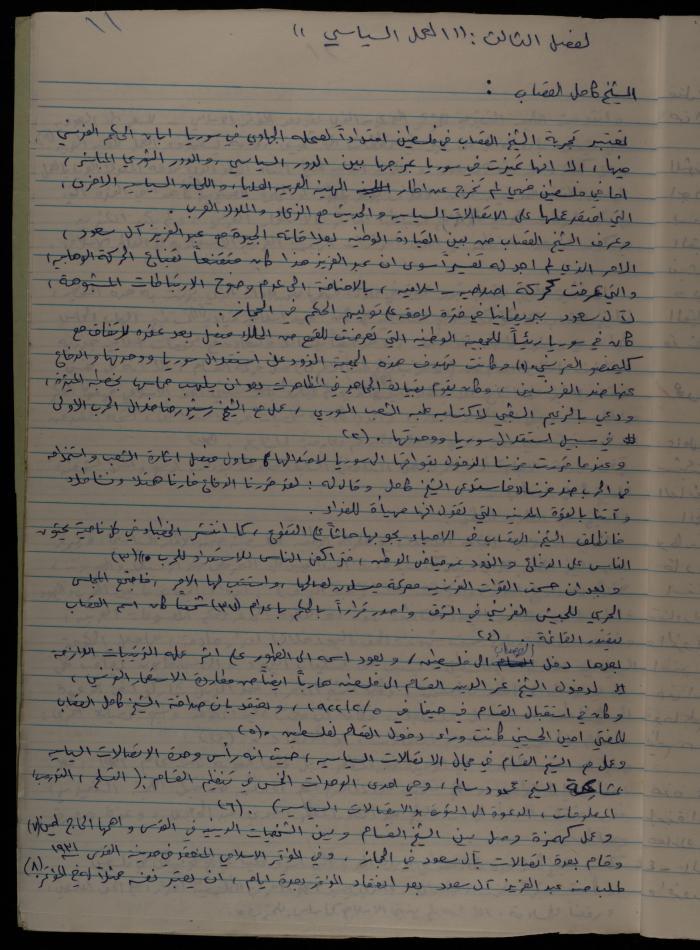 ١١
لفصل الثالث : (( العمل السياسي ))
الشيخ كامل القصاب :
تعتبر تجربة الشيخ القصاب في فلسطين امتداداً لعمله الجهادي في سوريا ابان الحكم الفرنسي
فيها ، الا انها تميزت في سوريا بمزجها بين الدور السياسي ، والدور الثوري المباشر ،
اما في فلسطين فهي لم تخرج عن اطار الهيئة العربية العليا ، واللجان السياسية الاخرى ،
التي اعتمد عملها على الاتصالات السياسية والحديث مع الزعماء والملوك العرب .
وعرف الشيخ القصاب من بين القيادة الوطنية بعلاقاته الجيدة مع عبد العزيز آل سعود ،
الامر الذي لم اجد له تفسيراً سوى ان عبد العزيز هذا كان مقتنعاً بقناع الحركة الوهابية
والتي عرفت كحركة اصلاحية - اسلامية ، بالاضافة الى عدم وضوح الارتباطات المشبوهة ،
لآل سعود ببريطانيا في فترة لاحقة على توليهم الحكم في الحجاز .
كان في سوريا رئيساً للجمعية الوطنية التي تعرضت للقمع من الملك فيصل بعد عقده للاتفاق مع
كليمنصو الفرنسي (١) وكانت تهدف هذه الجمعية الذود على استقلال سوريا ووحدتها والدفاع
عنها ضد الفرنسيين ، وكان يقوم بقيادة الجماهير في المظاهرات بعد ان يلهب حماسها بخطبه المثيرة ،
ودعي بالزعيم الشعبي لاكتسابه محبة الشعب السوري ، عمل مع الشيخ رشيد رضا خلال الحرب الاولى
في سبيل استقلال سوريا ووحدتها . (٢)
وعندما قررت فرنسا الدخول بقواتها الى سوريا لاحتلالها حاول فيصل اثارة الشعب واستخدامه
في الحرب ضد فرنسا فاستدعى الشيخ كامل وقال له : لقد قررنا الدفاع فأرنا همتك ونشاطك
وأتنا بالقوة المدنية التي تقول انها مهيأة للغداء .
فانطلق الشيخ القصاب في الاحياء يجوبها حاثاً على التطوع ، كما انتشر الخطباء في كل ناحية يحثون
الناس على الدفاع والذود عن حياض الوطن ، فتراكض الناس للاستعداد للحرب (٣)
وبعد ان حسمت القوات الفرنسية معركة ميسلون لصالحها ، واستتب لها الامر ، فاجتمع المجلس
الحربي للجيش الفرنسي في الشرق واصدر قراراً بالحكم باعدام (٣٧) شخصاً كان اسم القصاب
يتصدر القائمة . (٤)
بعدها دخل القصاب الى فلسطين / ويعود اسمه الى الظهور على اثر عمله الترتيبات اللازمة
لدخول الشيخ عز الدين القسام الى فلسطين هارباً ايضاً من مطاردة الاستعمار الفرنسي ،
وكان في استقبال القسام في حيفا في ١٩٢٢/٢/٥ ، ويعتقد بان صداقة الشيخ كامل القصاب
للمفتي امين الحسيني كانت وراء دخول القسام لفلسطين . (٥)
وعمل مع الشيخ القسام في مجال الاتصالات السياسية ، حيث انه رأس وحدة الاتصالات السياسية
بمشاركة الشيخ محمود سالم ، وهي احدى الوحدات الخمس في تنظيم القسام : ( التسلح ، التدريب ،
المعلومات ، الدعوة الى الثورة والاتصالات السياسية ) . (٦)
وعمل كهمزة وصل بين الشيخ القسام وبين الشخصيات الدينية في القدس واهمها الحاج امين (٧)
وقام بعدة اتصالات بآل سعود في الحجاز ، وفي المؤتمر الاسلامي المنعقد في مدينة القدس ١٩٣١
طلب منه عبد العزيز آل سعود بعد انعقاد المؤتمر بعدة ايام ، ان يعتبر نفسه ممثلاً له في المؤتمر (٨)